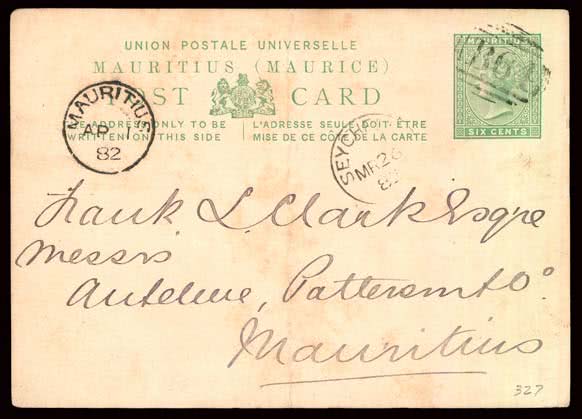 UNION POSTALE UNIVERSELLE
MAURITIUS (MAURICE)
POST CARD
THE ADDRESS ONLY TO BE WRITTEN ON THIS SIDE
L'ADRESSE SEULE DOIT ÊTRE MISE DE CE CÔTÉ DE LA CARTE
MAURITIUS
SIX CENTS
B64
MAURITIUS
AP 1
82
SEYCHE
MR 26
82
Frank L. Clark Esqre
Messrs
Antelme, Patterson & Co.
Mauritius
327